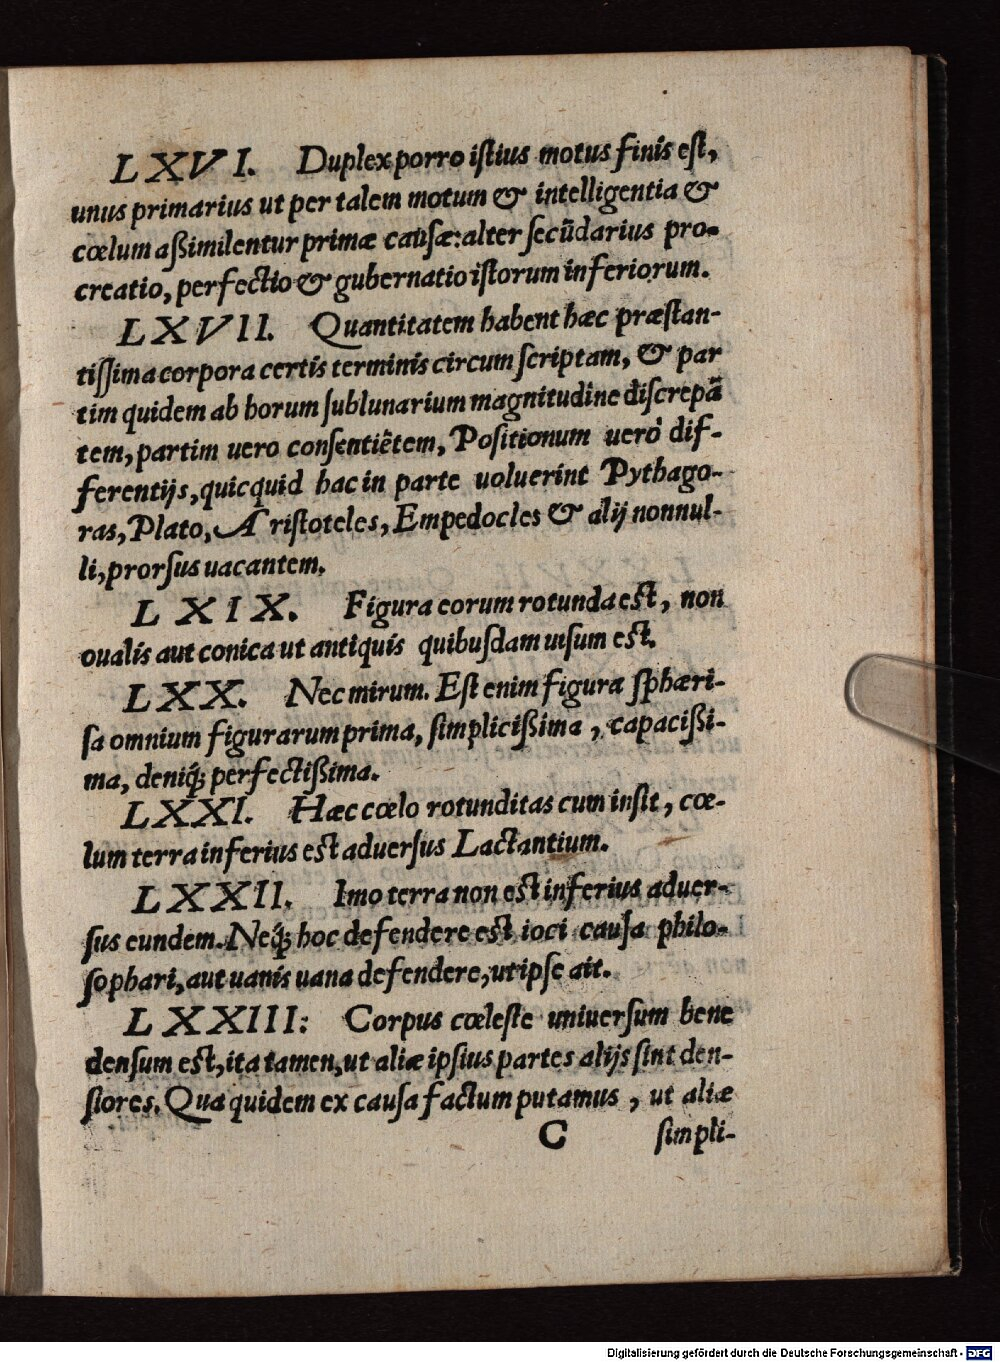 LXVI. Duplex porro iſtius motus finis eſt,
unus primarius ut per talem motum & intelligentia &
cœlum aßimilentur primæ cauſæ: alter ſecũdarius pro-
creatio, perfectio & gubernatio iſtorum inferiorum.
LXVII. Quantitatem habent hæc præſtan-
tiſſima corpora certis terminis circum ſcriptam, & par
tim quidem ab horum ſublunarium magnitudine diſcrepã
tem, partim uero conſentiẽtem, Poſitionum uerò dif-
ferentijs, quicquid hac in parte uoluerint Pythago-
ras, Plato, Ariſtoteles, Empedocles & alij nonnul-
li, prorſus uacantem.
LXIX. Figura eorum rotunda eſt, non
oualis aut conica ut antiquis quibuſdam uiſum eſt.
LXX. Nec mirum. Eſt enim figura ſphæri-
ſa omnium figurarum prima, ſimplicißima, capacißi-
ma, deniq́; perfectißima.
LXXI. Hæc cœlo rotunditas cum inſit, cœ-
lum terra inferius eſt aduerſus Lactantium.
LXXII. Imo terra non eſt inferius aduer-
ſus eundem. Neq́; hoc defendere eſt ioci cauſa philo-
ſophari, aut uanis uana defendere, ut ipſe ait.
LXXIII: Corpus cœleſte uniuerſum bene
denſum eſt, ita tamen, ut aliæ ipſius partes alijs ſint den-
ſiores. Qua quidem ex cauſa factum putamus, ut aliæ
C ſimpli-
Digitalisierung gefördert durch die Deutsche Forschungsgemeinschaft - DFG